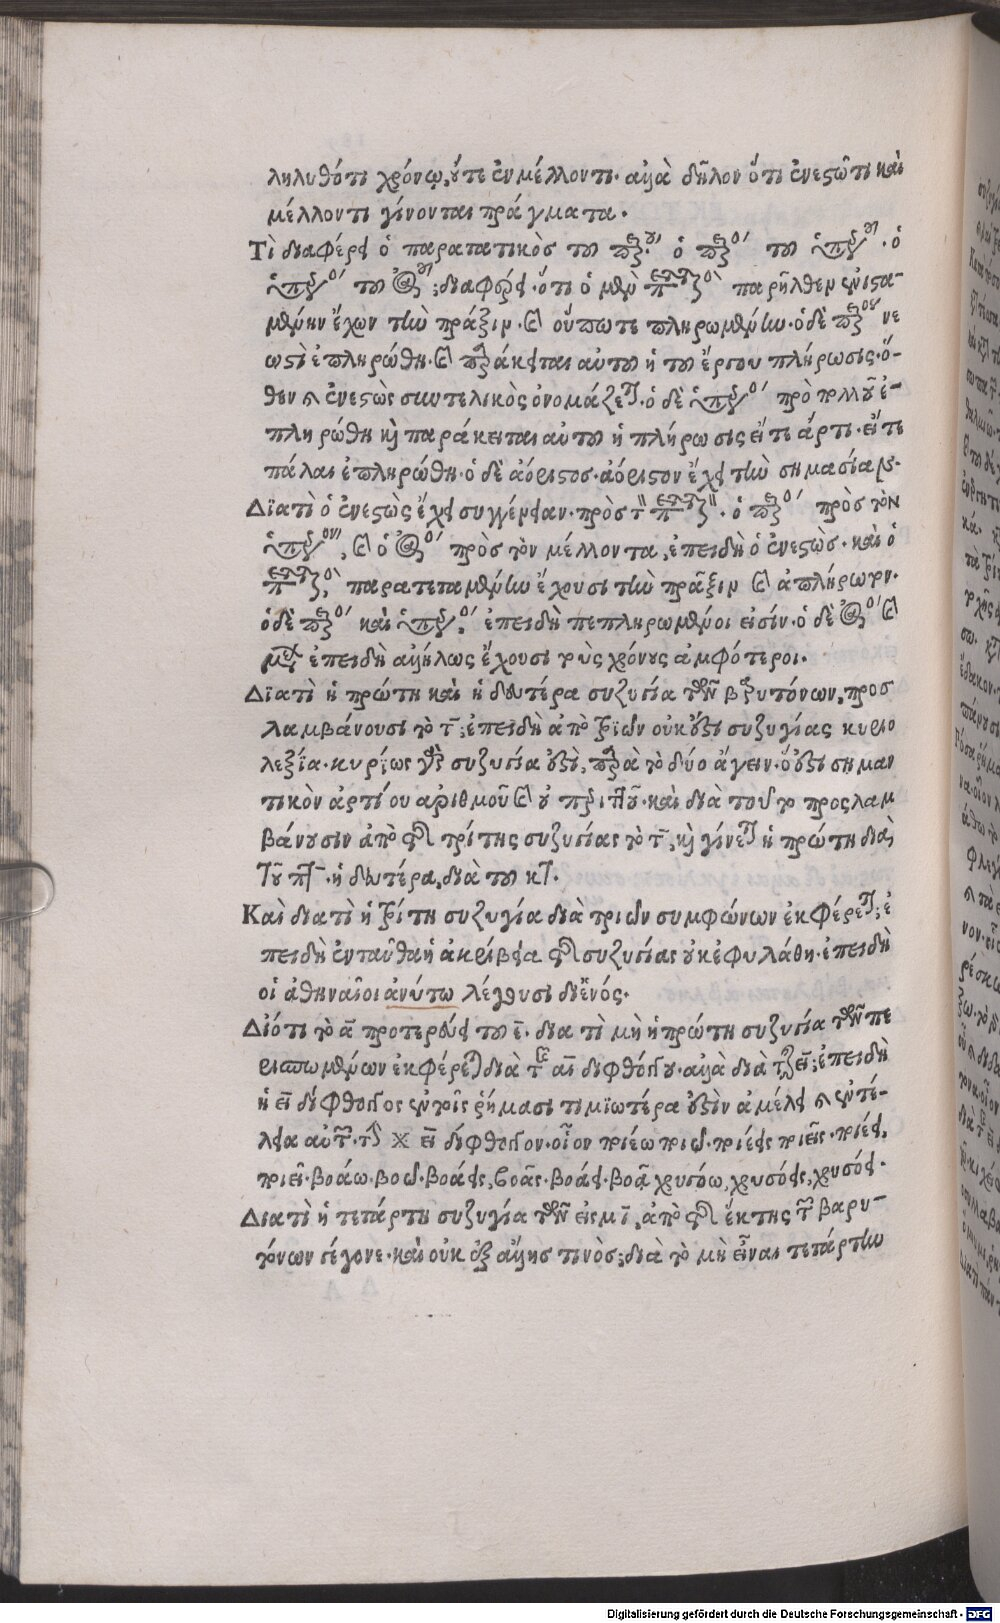 ληλυθότι χρόνῳ, οὔτε ἐν μέλλοντι· ἀλλὰ δῆλον ὅτι ἐνεστῶτι καὶ
μέλλοντι γίνονται πράγματα.
Τὶ διαφέρει ὁ παρατατικὸς τοῦ ὁ τοῦ ὁ
τοῦ ; διαφέρει· ὅτι ὁ μὲν παρῆλθεν ἐνιστα-
μένην ἔχων τὴν πρᾶξιν· καὶ οὔπωτε πληρωμένην· ὁ δὲ νε
ωστὶ ἐπληρώθη· καὶ παράκειται αὐτοῦ ἡ τοῦ ἔργου πλήρωσις· ὅ-
θεν καὶ ἐνεστὼς συντελικὸς ὀνομάζεται· ὁ δὲ πρὸ πολλοῦ ἐ-
πληρώθη καὶ παράκειται αὐτοῦ ἡ πλήρωσις εἴτε ἄρτι· εἴτε
πάλαι ἐπληρώθη· ὁ δὲ ἀόριστος· ἀόριστον ἔχει τὴν σημασίαν·
Διατὶ ὁ ἐνεστὼς ἔχει συγγένειαν· πρὸς τ · ὁ πρὸς τὸν
, καὶ ὁ πρὸς τὸν μέλλοντα, ἐπειδὴ ὁ ἐνεστὼς· καὶ ὁ
παρατεταμένην ἔχουσι τὴν πρᾶξιν καὶ ἀπλήρωτον·
ὁ δὲ καὶ , ἐπειδὴ πεπληρωμένοι εἰσίν· ὁ δὲ καὶ
ἐπειδὴ ἀδήλως ἔχουσι τοὺς χρόνους ἀμφότεροι.
Διατὶ ἡ πρώτη καὶ ἡ δευτέρα συζυγία τῶν βαρυτόνων, προσ
λαμβάνουσι τὸ τ̄; ἐπειδὴ ἀπὸ τριῶν οὐκ ἔστι συζυγίας κυριο
λεξία· κυρίως γὰρ συζυγία ἐστὶ, παρὰ τὸ δύο ἄγειν· ὅ ἐστι σημαν
τικὸν ἀρτίου ἀριθμοῦ καὶ οὐ περιττοῦ· καὶ διὰ τοῦτο προσλαμ
βάνουσιν ἀπὸ τῆς τρίτης συζυγίας τὸ τ̄, καὶ γίνεται ἡ πρώτη διὰ
τοῦ πτ· ἡ δευτέρα, διὰ τοῦ κτ·
Καὶ διατὶ ἡ τρίτη συζυγία διὰ τριῶν συμφώνων ἐκφέρεται; ἐ
πειδὴ ἐνταῦθα ἡ ἀκρίβεια τῆς συζυγίας οὐκ ἐφυλάθη· ἐπειδὴ
οἱ ἀθηναῖοι ἀνύτω λέγουσι δι' ἑνός·
Διότι τὸ ᾱ προτερεύει τοῦ ε̄· δια τὶ μὴ ἡ πρώτη συζυγία τῶν πε
ρισπωμένων ἐκφέρεται διὰ τῆς αῑ διφθόγγου· ἀλλὰ διὰ τῆς εῑ; ἐπειδὴ
ἡ εῑ δίφθογγος ἐν τοῖς ῥήμασι τιμϊωτέρα ἐστὶν ἀμέλει καὶ ἐντέ-
λεια αὐτ εῑ δίφθογγον· οἷον ποιέω ποιῶ· ποιέεις ποιεῖς· ποιέει,
ποιεῖ· βοάω· βοῶ· βοάεις, βοᾷς· βοάει· βοᾷ χρυσόω, χρυσόεις, χρυσόει·
Διατὶ ἡ τετάρτη συζυγία τῶν εἰς μῑ, ἀπὸ τῆς ἕκτης τῶν βαρυ-
τόνων γέγονε· καὶ οὐκ ἐξ ἄλλης τινὸς; διὰ τὸ μὴ εἶναι τετάρτην
Digitalisierung gefördert durch die Deutsche Forschungsgemeinschaft - DFG